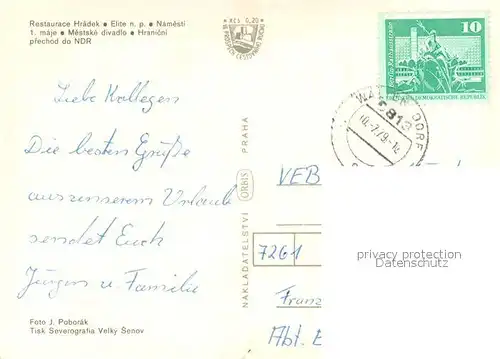 Restaurace Hrádek • Elite n. p. • Náměstí
1. máje • Městské divadlo • Hraniční
přechod do NDR
KČS 0,20
10
Berlin, Rathausstraße
DEUTSCHE DEMOKRATISCHE REPUBLIK
DORF
Liebe Kollegen
Die besten Grüße
aus unserem Urlaub
sendet Euch
Jürgen u Familie
NAKLADATELSTVÍ ORBIS PRAHA
VEB
7261
Franz
Abt. E
privacy protection
Datenschutz
Foto J. Poborák
Tisk Severografia Velký Šenov